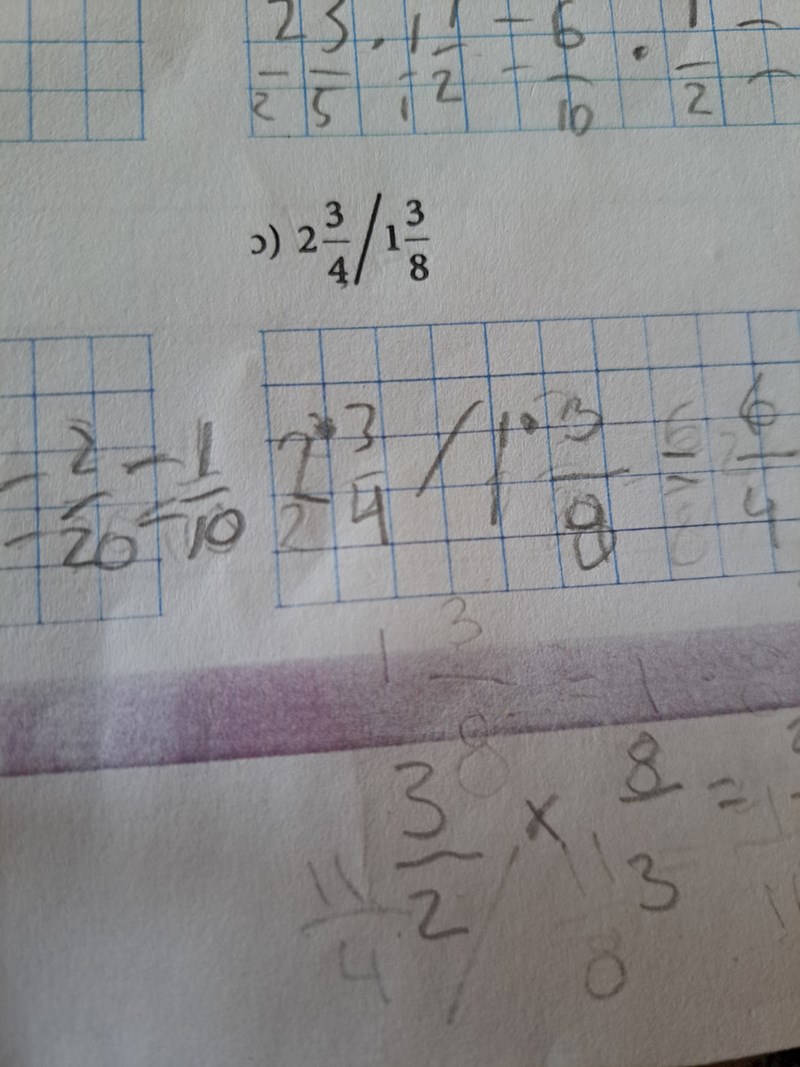 2/2 3/5 · 1/1 1/2 = 6/10 · 1/2 =
ɔ) 2 3/4 / 1 3/8
= 2/20 = 1/10
2/2 · 3/4 / 1 · 3/8 = 6/4
1 3/8 = 1 ·
3/2 × 8/3 =
11/4 / 11/8